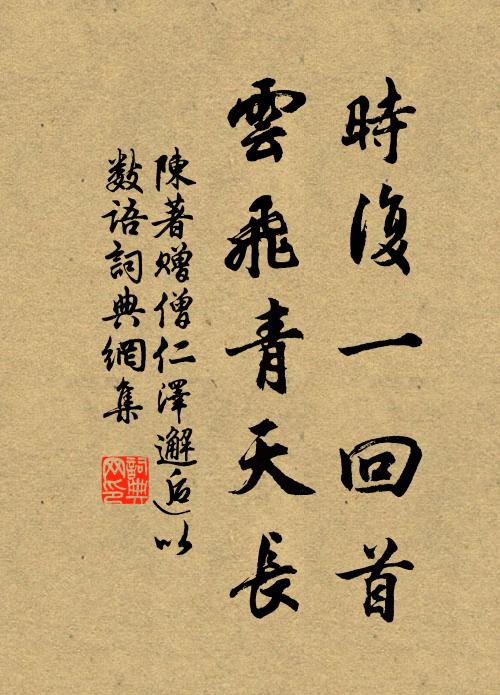 時復一回首
雲飛青天長
陳著贈僧仁澤邂逅以
数语詞典網集
詞典
网印